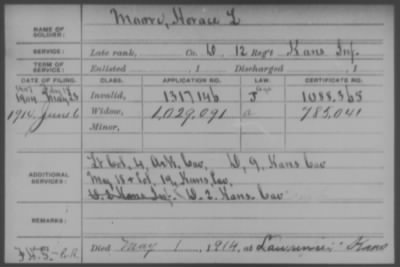 NAME OF SOLDIER: Moore, Horace L
SERVICE: Late rank, Co. D, 12 Reg't Kans Inf.
TERM OF SERVICE: Enlisted , 1 Discharged , 1
DATE OF FILING. CLASS. APPLICATION NO. LAW. CERTIFICATE NO.
1904 May 23 Invalid, 1317146 Age 1088.368
1914, June 6 Widow, 1,029,091 a 783,041
Minor,
ADDITIONAL SERVICES:
Lt Col, 4, Ark. Cav, D, 9, Kans Cav
Maj 18 & Col, 19, Kans, Cav,
D. 2 Kans Inf. D. 2. Kans. Cav
REMARKS:
Died May 1, 1914, at Lawrence Kans